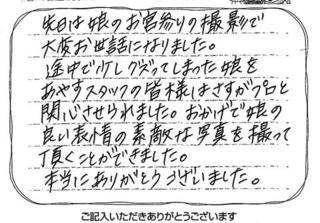 先日は娘のお宮参りの撮影で
大変お世話になりました。
途中で少しグズってしまった娘を
あやすスタッフの皆様はさすがプロと
関心させられました。おかげで娘の
良い表情の素敵な写真を撮って
頂くことができました。
本当にありがとうございました。
ご記入いただきありがとうございます